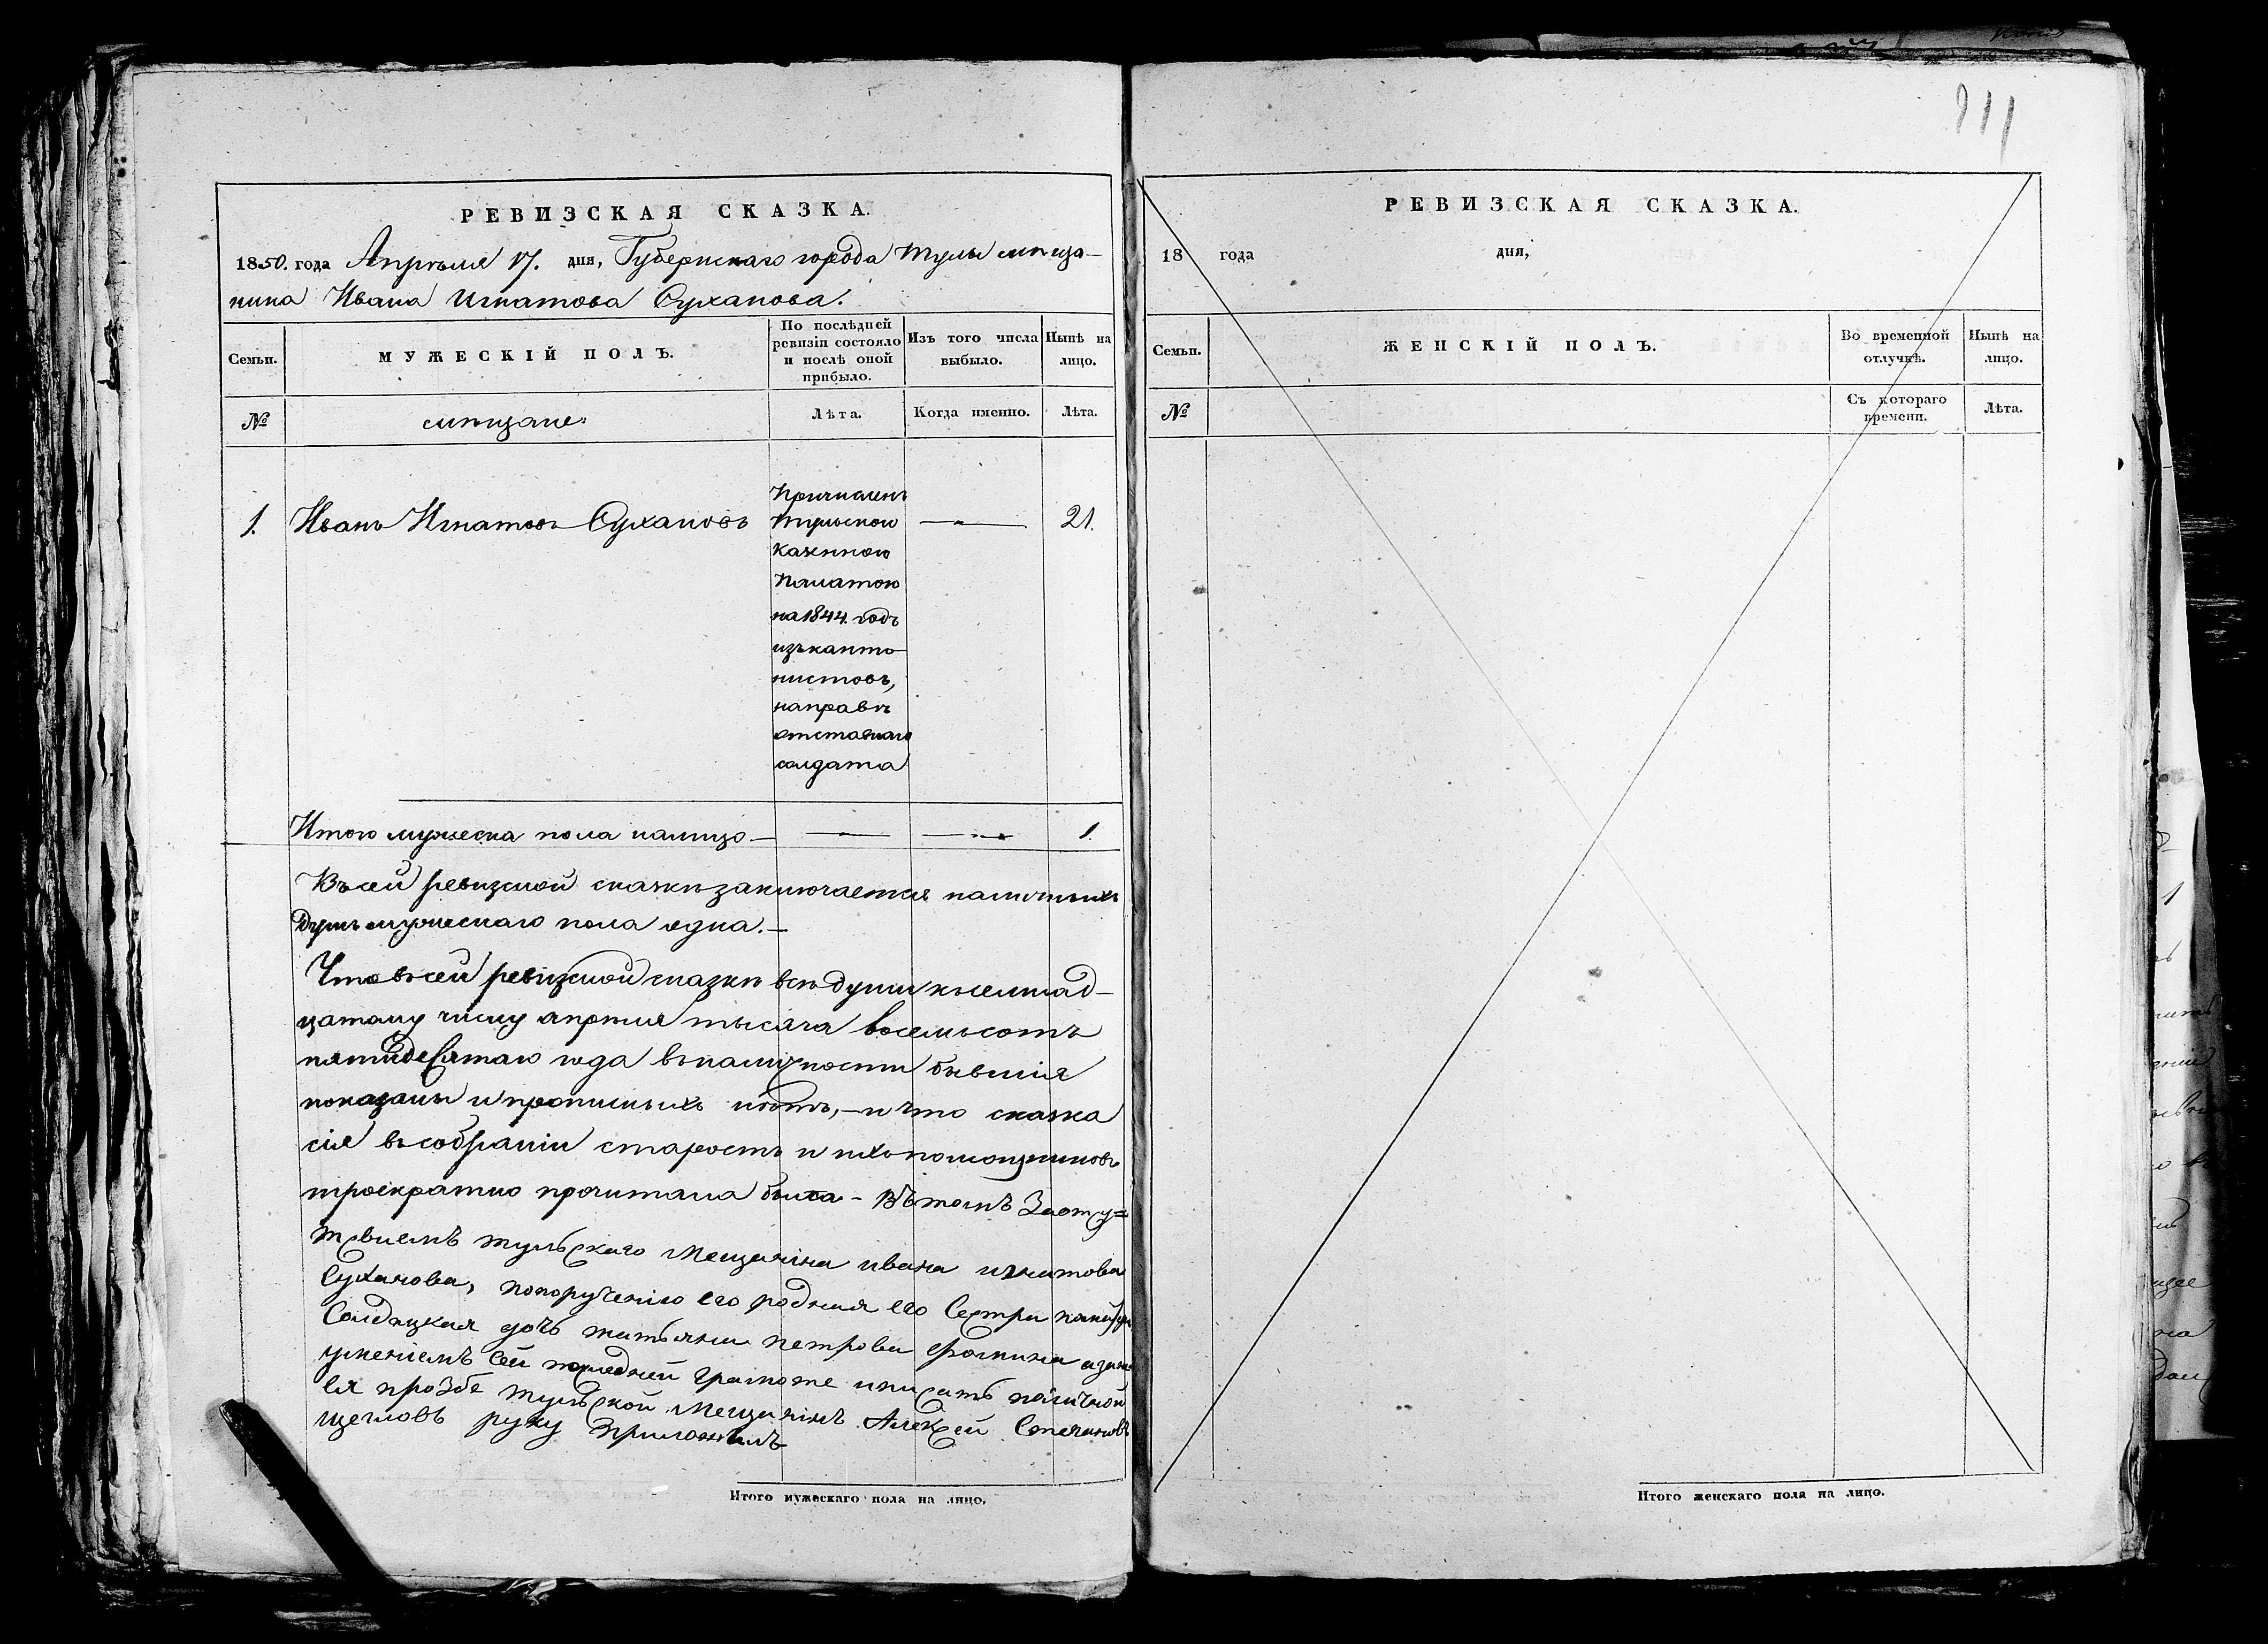 РЕВИЗСКАЯ СКАЗКА.
1850. года Апрѣля 17. дня, Губернскаго города Тулы мѣща-
нина Ивана Игнатова Суханова.
Семьи.
МУЖЕСКІЙ ПОЛЪ.
По послѣдней
ревизіи состояло
и послѣ оной
прибыло.
Изъ того числа
выбыло.
Нынѣ на
лицо.
№
мѣщане.
Лѣта.
Когда именно.
Лѣта.
1. Иванъ Игнатовъ Сухановъ
Причисленъ
Тульскою
казенною
Палатою
на 1844. годъ
изъ канто-
нистовъ,
на правѣ
отставнаго
солдата
21.
Итого мужеска пола налицо —
1.
Въ сей ревизской сказкѣ заключается наличныхъ
душъ мужескаго пола одна. —
Что в сей ревизской сказкѣ всѣ души къ семнад-
цатому числу апрѣля тысяча восемьсотъ
пятидесятаго года въ наличности бывшія
показаны и прописныхъ нѣтъ, — и что сказка
сія въ собраніи старостъ и ихъ помощниковъ
троекратно прочитана была - Въ томъ За отсу=
тсвиемъ тульскаго Мещанина ивана игнатова
Суханова, по поручению его родная его Сестра
Солдацкая дочь татьяна петрова Фомина а за не
уменіемъ Сей последней Грамоте и писать по личной
Ея прозбе тульской Мещанинъ Алексей Степановъ
щегловъ руку приложилъ
Итого мужескаго пола на лицо.
911
РЕВИЗСКАЯ СКАЗКА.
18 года дня,
Семьи.
ЖЕНСКІЙ ПОЛЪ.
Во временной
отлучкѣ.
Нынѣ на
лицо.
№
Съ котораго
времени.
Лѣта.
Итого женскаго пола на лицо.